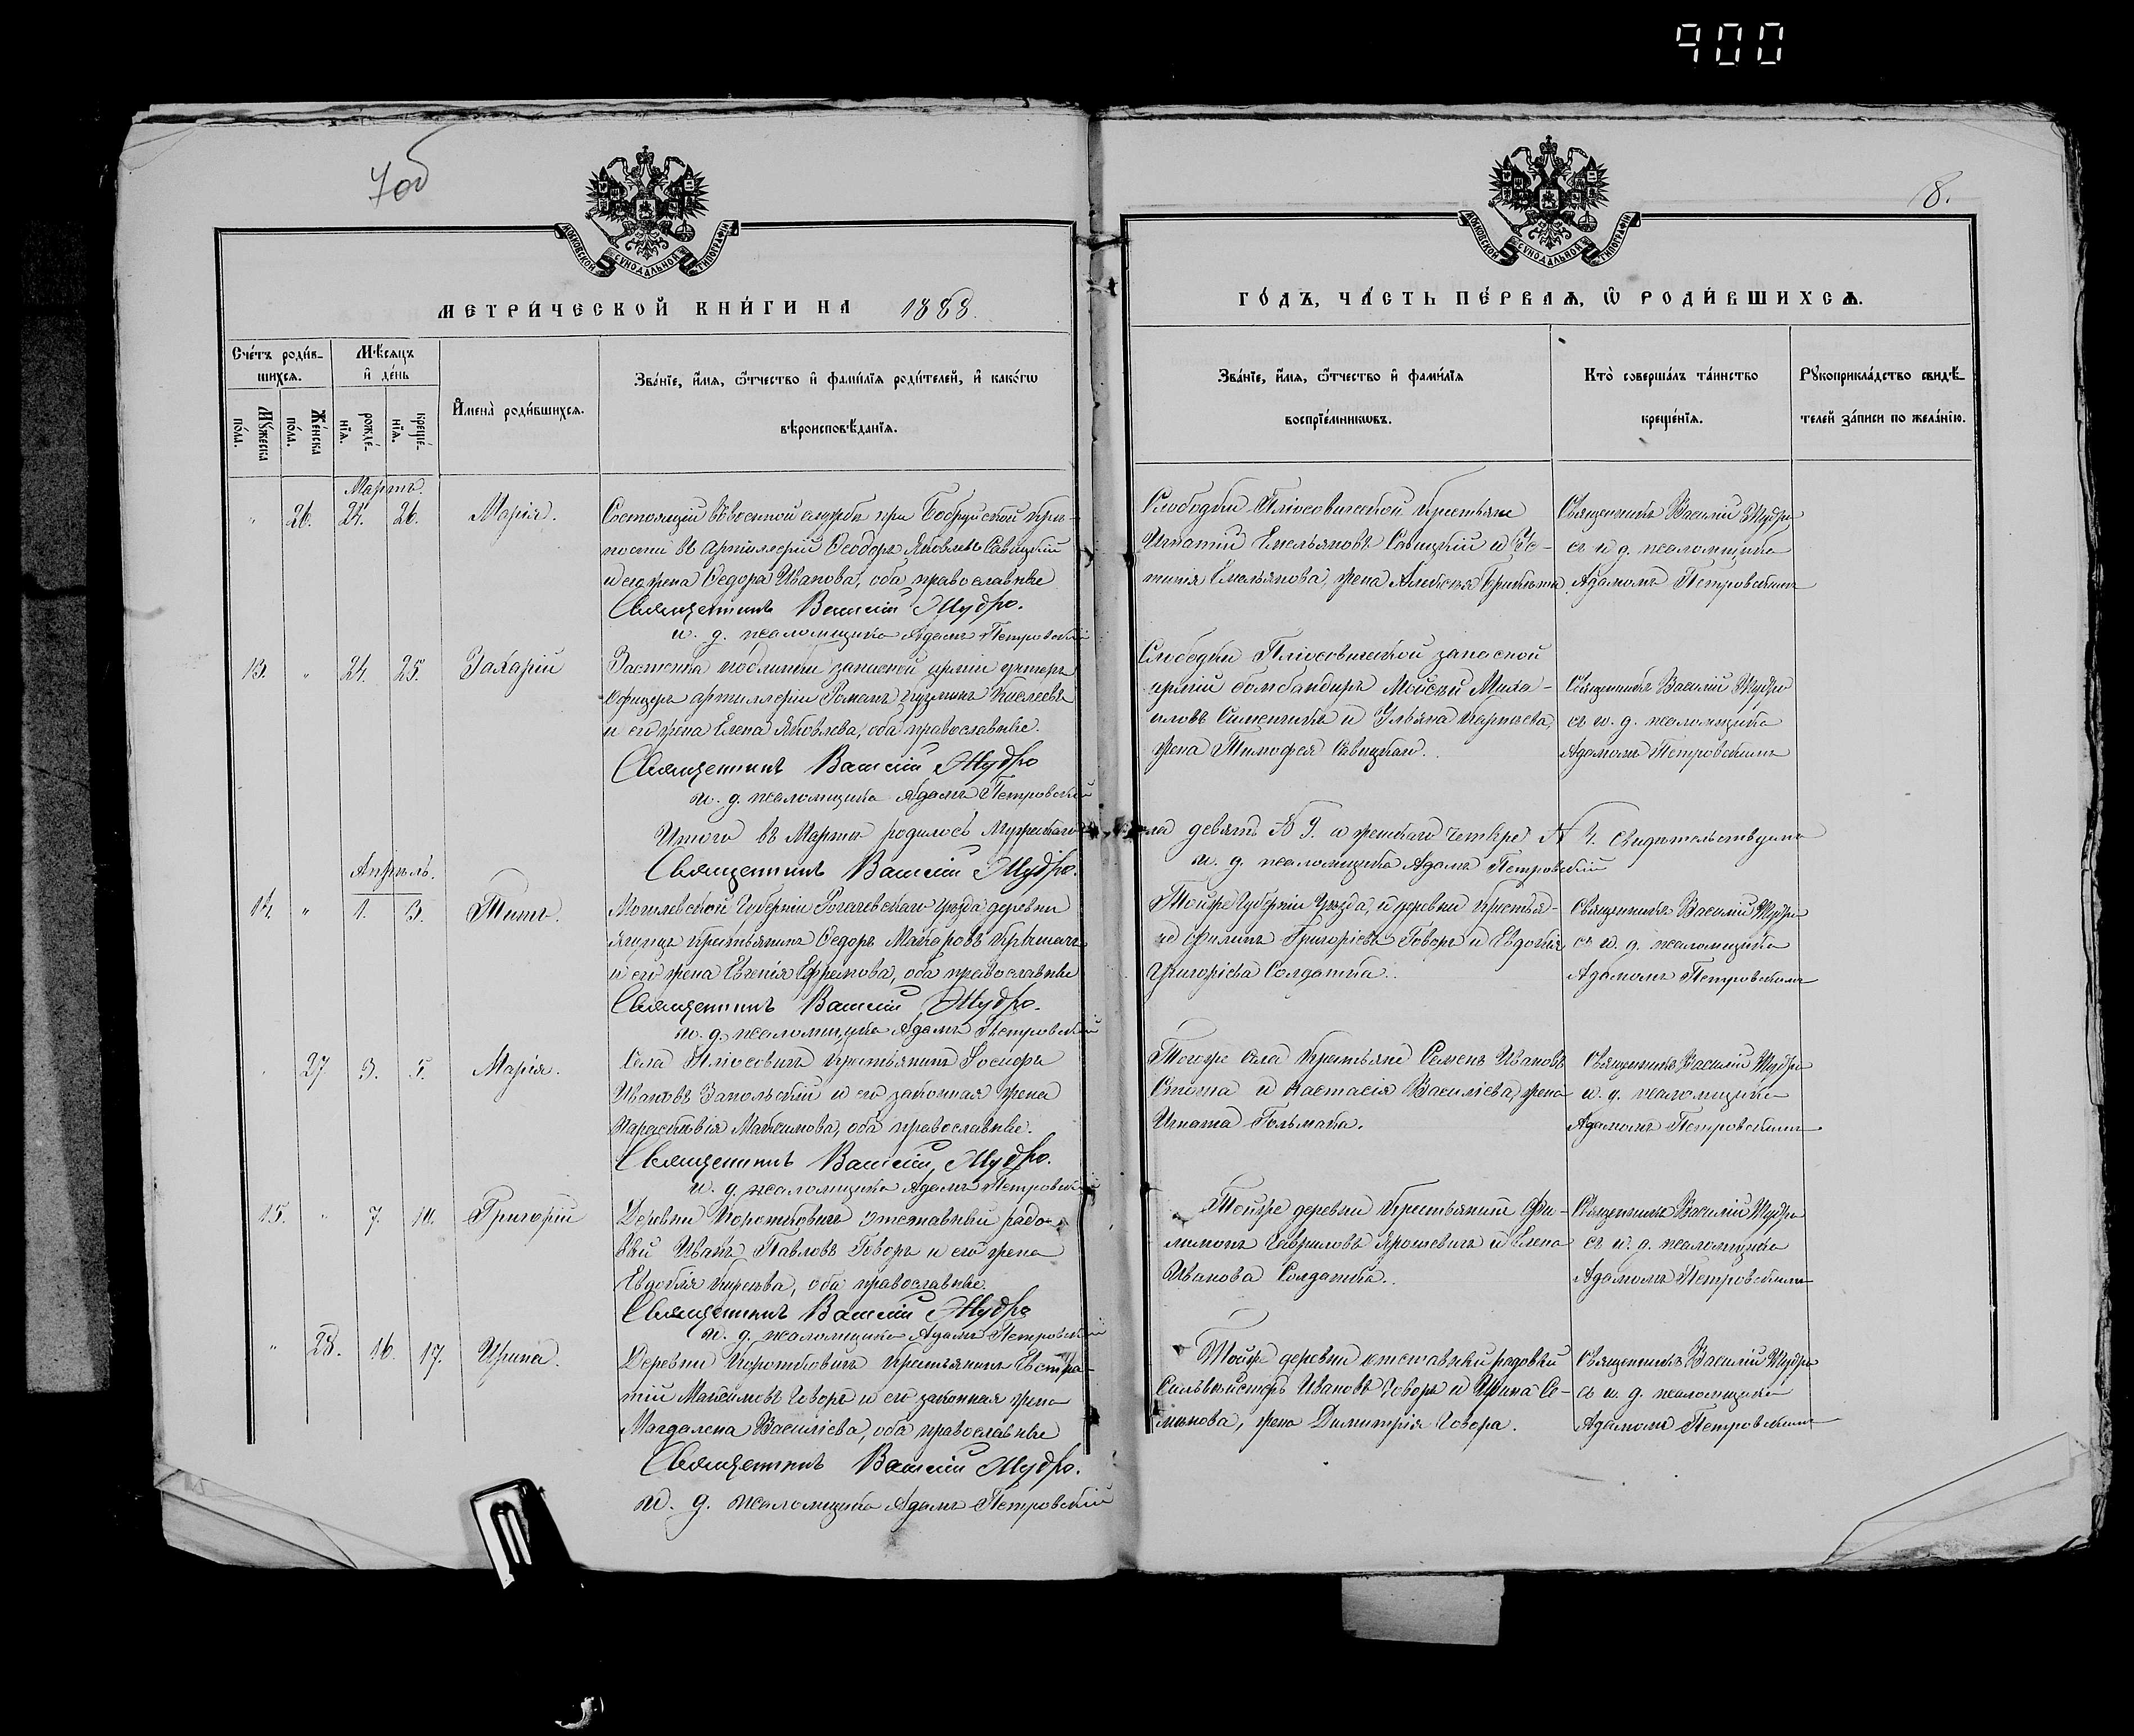 900
7об
8.
МОСКОВСКОЙ СѴНОДАЛЬНОЙ ТИПОГРАФІИ
МОСКОВСКОЙ СѴНОДАЛЬНОЙ ТИПОГРАФІИ
МЕТРИ́ЧЕСКОЙ КНИ́ГИ НА 1888.
ГО́ДЪ, ЧА́СТЬ ПЕ́РВАѦ, Ѡ РОДИ́ВШИХСѦ.
Сче́тъ роди́вшихсѧ.
Мѣ́сѧцъ и де́нь
Мꙋ́жеска по́ла.
Же́нска по́ла.
рожде́нїѧ.
креще́нїѧ.
Имена̀ роди́вшихсѧ.
Зва́нїе, и́мѧ, ѻ́тчество и фами́лїѧ роди́телей, и како́гѡ
вѣроисповѣ́данїѧ.
Зва́нїе, и́мѧ, ѻ́тчество и фами́лїѧ
воспрїе́мникѡвъ.
Кто̀ соверша́лъ та́инство
креще́нїѧ.
Рꙋкоприкла́дство свидѣ́телей за́писи по жела́нїю.
Мартъ.
" 26. 24. 26. Марія.
Состоящій въ военной службѣ при Бобруйской крѣпости въ артиллеріи Ѳеодоръ Яковлевъ Савицкій
и его жена Ѳедора Иванова, оба православные
Священникъ Василій Мудро.
и. д. псаломщика Адамъ Петровскій
Слободки Пліосовической крестьяне
Игнатій Емельяновъ Савицкій и
Емельянова, жена
Священникъ Василій Мудро
съ и д. псаломщика
Адамомъ Петровскимъ
13. " 24. 25. Захарій
Застѣнка запасной арміи унтеръ
офицеръ артиллеріи Романъ Киселевъ
и его жена Елена Яковлева, оба православные.
Священникъ Василій Мудро
и. д. псаломщика Адамъ Петровскій
Слободки Пліосовической запасной
арміи бомбандиръ Мойсей Михаиловъ и Ульяна Карпаева,
жена Тимофея Савицкаго.
Священникъ Василій Мудро
съ и. д. псаломщика
Адамомъ Петровскимъ
Итого въ Мартѣ родилось мужескаго пола девять № 9. и женскаго четыре № 4. Свидѣтельствуемъ
Священникъ Василій Мудро.
и. д. псаломщика Адамъ Петровскій
Апрѣль.
14. " 1. 3. Титъ.
Могилевской Губерніи Рогачевскаго уѣзда деревни
крестьянинъ Ѳедоръ Макаровъ
и его жена Евгенія Ефремова, оба православные
Священникъ Василій Мудро.
и. д. псаломщика Адамъ Петровскій
Тойже Губерніи Уѣзда, и деревни крестьяне Филипъ Григоріевъ Говоръ и Евдокія
Григоріева Солдатка.
Священникъ Василій Мудро
съ и. д. псаломщика
Адамомъ Петровскимъ
" 27 3. 5. Марія.
Села Пліосовичъ крестьянинъ Іосифъ
Ивановъ Запольскій и его законная жена
Параскевія Максимова, оба православные.
Священникъ Василій Мудро.
и. д. псаломщика Адамъ Петровскій
Тогоже села крестьяне Семенъ Ивановъ
и Настасія Василіева, жена
Игната Гольмака.
Священникъ Василій Мудро
и. д. псаломщика
Адамомъ Петровскимъ
15. " 7. 10. Григорій
Деревни Короткович отставный рядовый Иванъ Павловъ Говоръ и его жена
Евдокія Киреева, оба православные
Священникъ Василій Мудро
и. д. псаломщика Адамъ Петровскій
Тойже деревни крестьянинъ Филимонъ Гавриловъ Ярошевичъ и Елена
Иванова Солдатка.
Священникъ Василій Мудро
съ и. д. псаломщика
Адамомъ Петровскимъ
" 28. 16. 17. Ирина.
Деревни Короткович крестьянинъ Евстратій Максимовъ Говоръ и его законная жена
Магдалена Василіева, оба православные
Священникъ Василій Мудро.
и. д. псаломщика Адамъ Петровскій
Тойже деревни отставный рядовый
Сильвестръ Ивановъ Говоръ и Ирина Семенова, жена Димитрія Говора.
Священникъ Василій Мудро
съ и. д. псаломщика
Адамомъ Петровскимъ